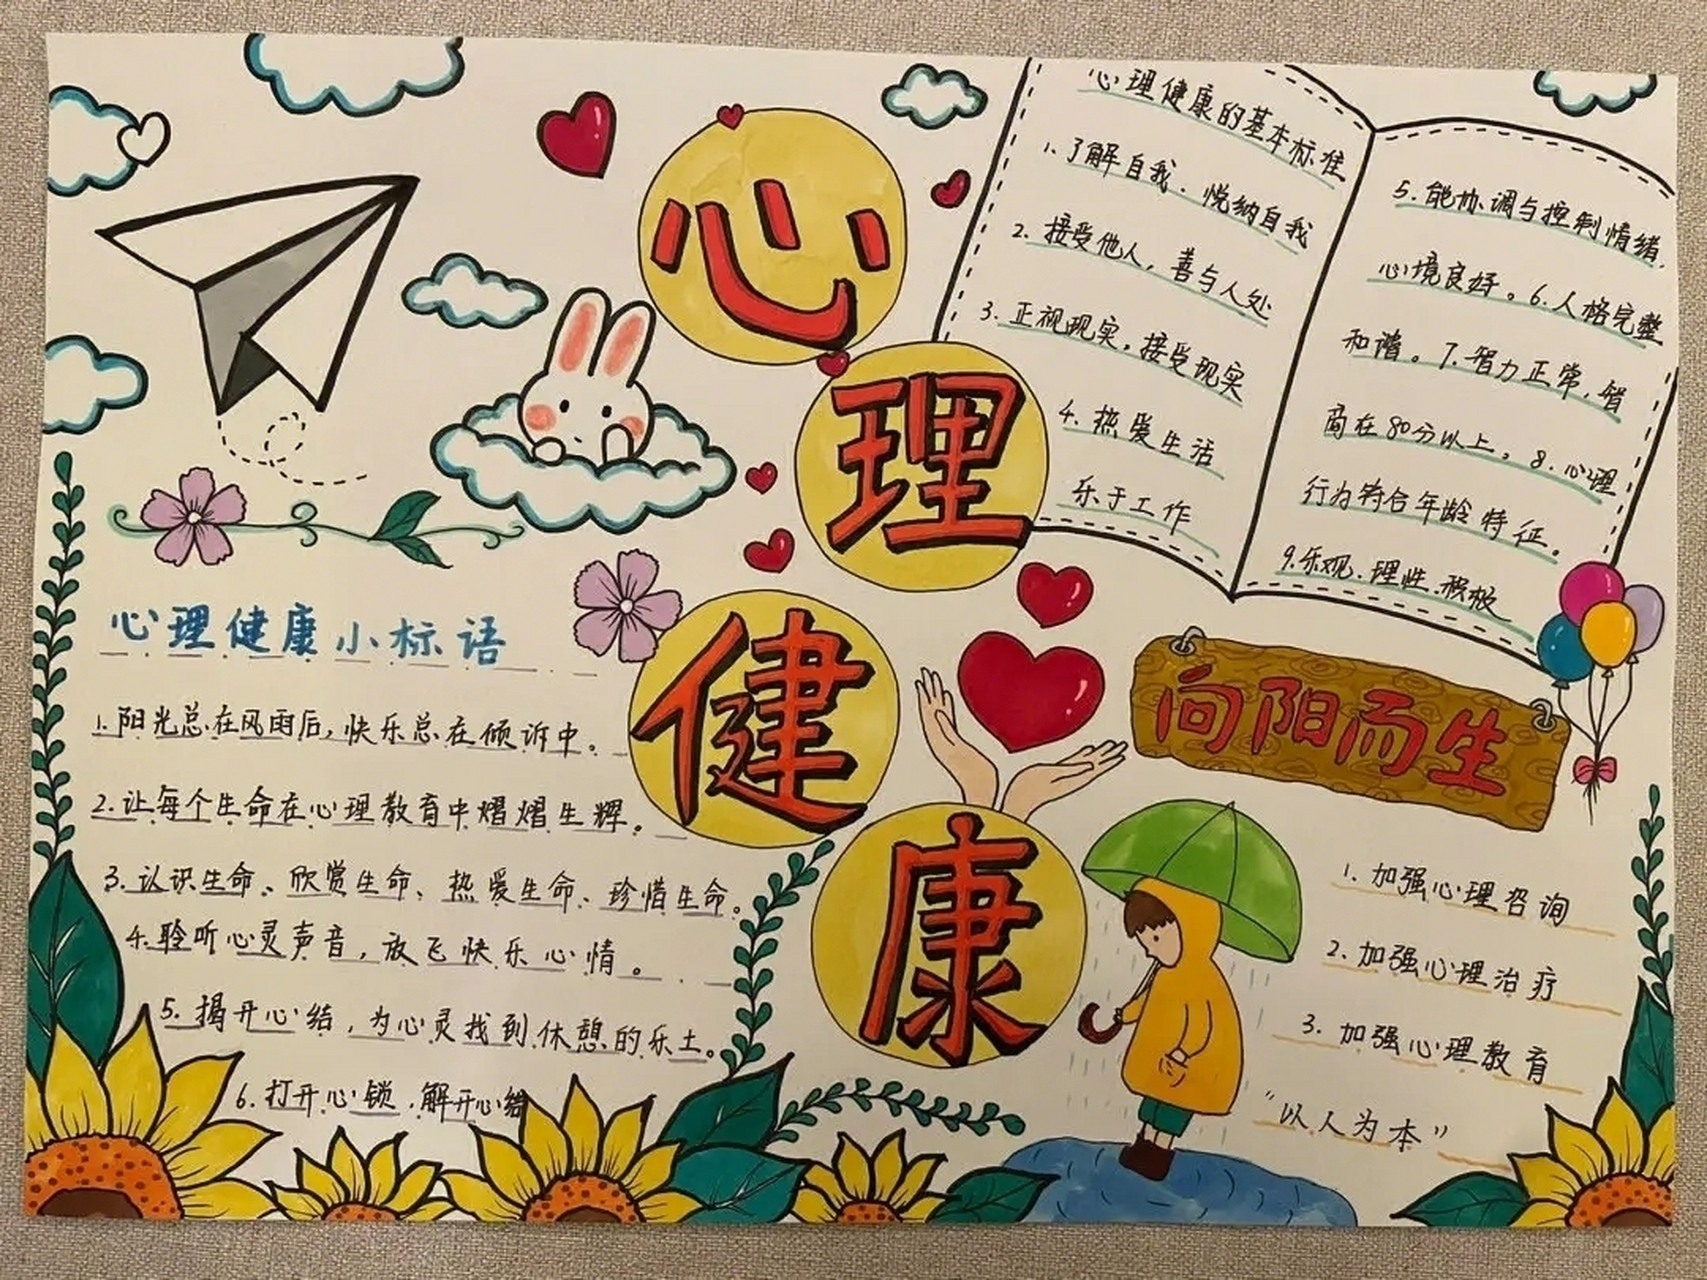 心理健康
心理健康的基本标准
1.了解自我.悦纳自我
2.接受他人,善与人处
3.正视现实,接受现实
4.热爱生活
乐于工作
5.能协调与控制情绪,
心境良好。6.人格完整
和谐。7.智力正常,智
商在80分以上。8.心理
行为符合年龄特征。
9.乐观.理性.积极
心理健康小标语
1.阳光总在风雨后,快乐总在倾诉中。
2.让每个生命在心理教育中熠熠生辉。
3.认识生命、欣赏生命、热爱生命、珍惜生命。
4.聆听心灵声音,放飞快乐心情。
5.揭开心结,为心灵找到休憩的乐土。
6.打开心锁.解开心结
向阳而生
1.加强心理咨询
2.加强心理治疗
3.加强心理教育
“以人为本”